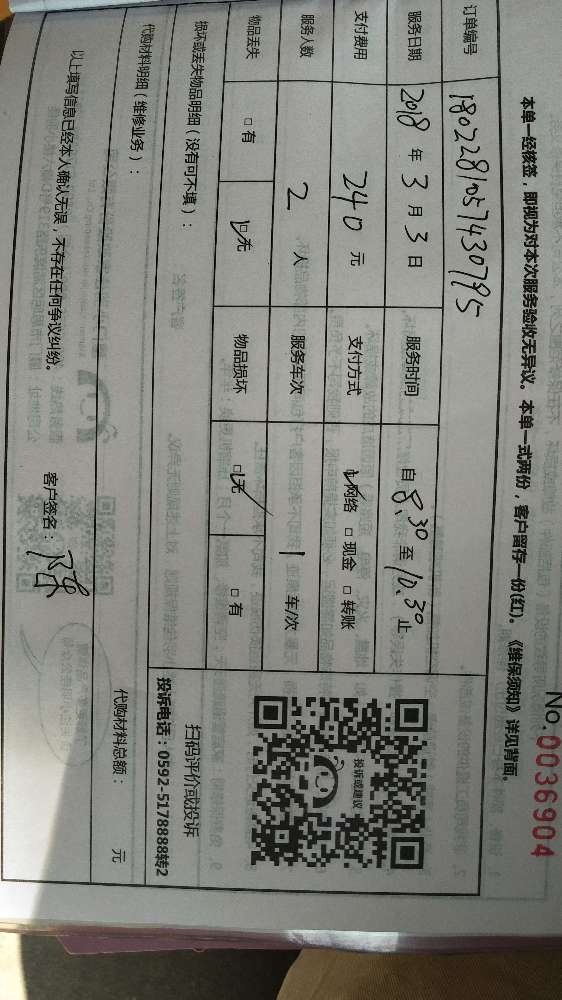 No.0036904
本单一经核签，即视为对本次服务验收无异议。本单一式两份，客户留存一份(红)。《维保须知》详见背面。
订单编号 1802281057430795
服务日期 2018 年 3 月 3 日 服务时间 自 8.30 至 10.30 止
支付费用 240 元 支付方式 ☑网络 □现金 □转账
服务人数 2 人 服务车次 1 车/次
物品丢失 □有 ☑无 物品损坏 ☑无 □有
投诉或建议
损坏或丢失物品明细（没有可不填）：
扫码评价或投诉
投诉电话：0592-5178888转2
代购材料明细（维修业务）：
代购材料总额： 元
以上填写信息已经本人确认无误，不存在任何争议纠纷。
客户签名：陈